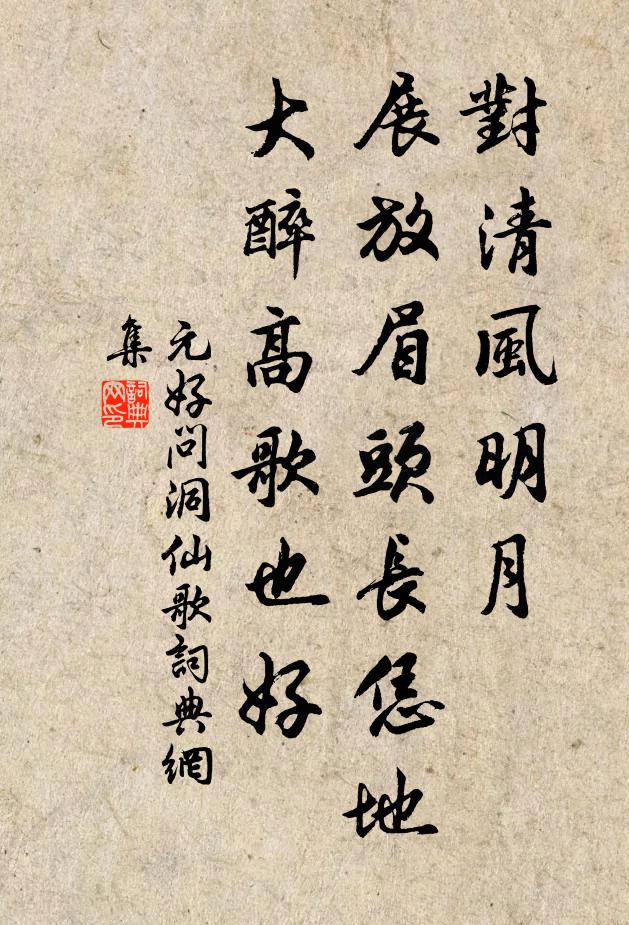 對清風明月
展放眉頭長恁地
大醉高歌也好
元好问洞仙歌詞典網
集
詞典
网印